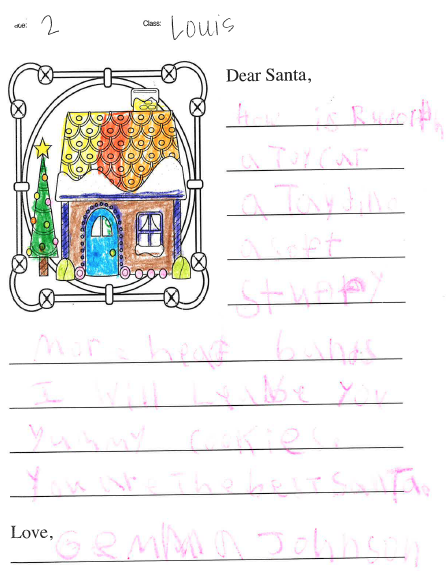 2 Class: Louis
Dear Santa,
How is Ruworph
a Toy car
a Toy
a soft
stuffy
More bunds
I will You
Yummy cookies.
You are The best Santa.
Love, GEMMA Johnson